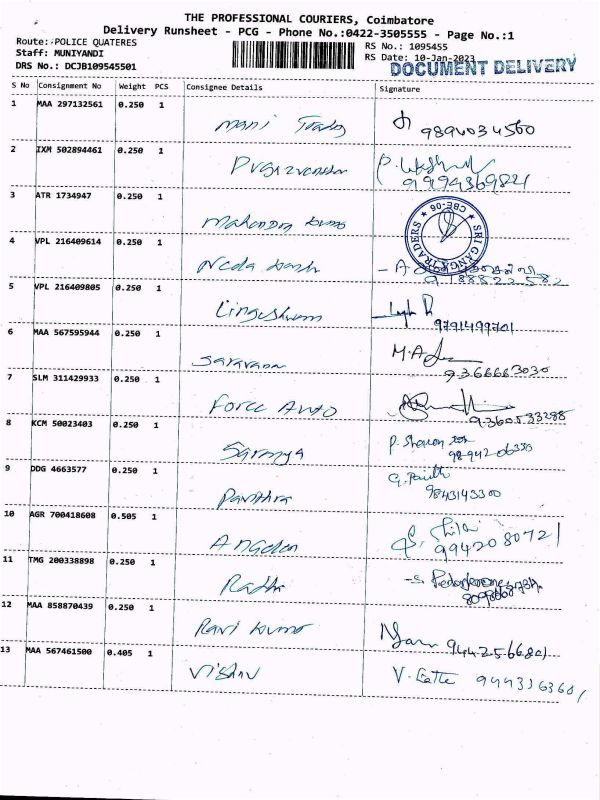 THE PROFESSIONAL COURIERS, Coimbatore
Delivery Runsheet - PCG - Phone No.:0422-3505555 - Page No.:1
Route: POLICE QUATERES
RS No.: 1095455
Staff: MUNIYANDI
RS Date: 10-Jan-2023
DRS No.: DCJB109545501
DOCUMENT DELIVERY
S No Consignment No Weight PCS Consignee Details Signature
1 MAA 297132561 0.250 1 Mani
9894034500
2 IXM 502894461 0.250 1
P.
3 ATR 1734947 0.250 1 Mahendra kumo
SRI GANGA TRADERS CBE-06
4 VPL 216409614 0.250 1
5 VPL 216409805 0.250 1 Lingeshwaran
9791499701
6 MAA 567595944 0.250 1 Saravana
M.A
9366663030
7 SLM 311429933 0.250 1 Force Auto
9360533288
8 KCM 50023403 0.250 1 Saranya
P.
9 DDG 4663577 0.250 1 Pavithra
9843143300
10 AGR 700418608 0.505 1
9942080721
11 TMG 200338898 0.250 1 Radhi
12 MAA 858870439 0.250 1 Ravi kumo
9442566801
13 MAA 567461500 0.405 1 Vishnu
V. 9443363601